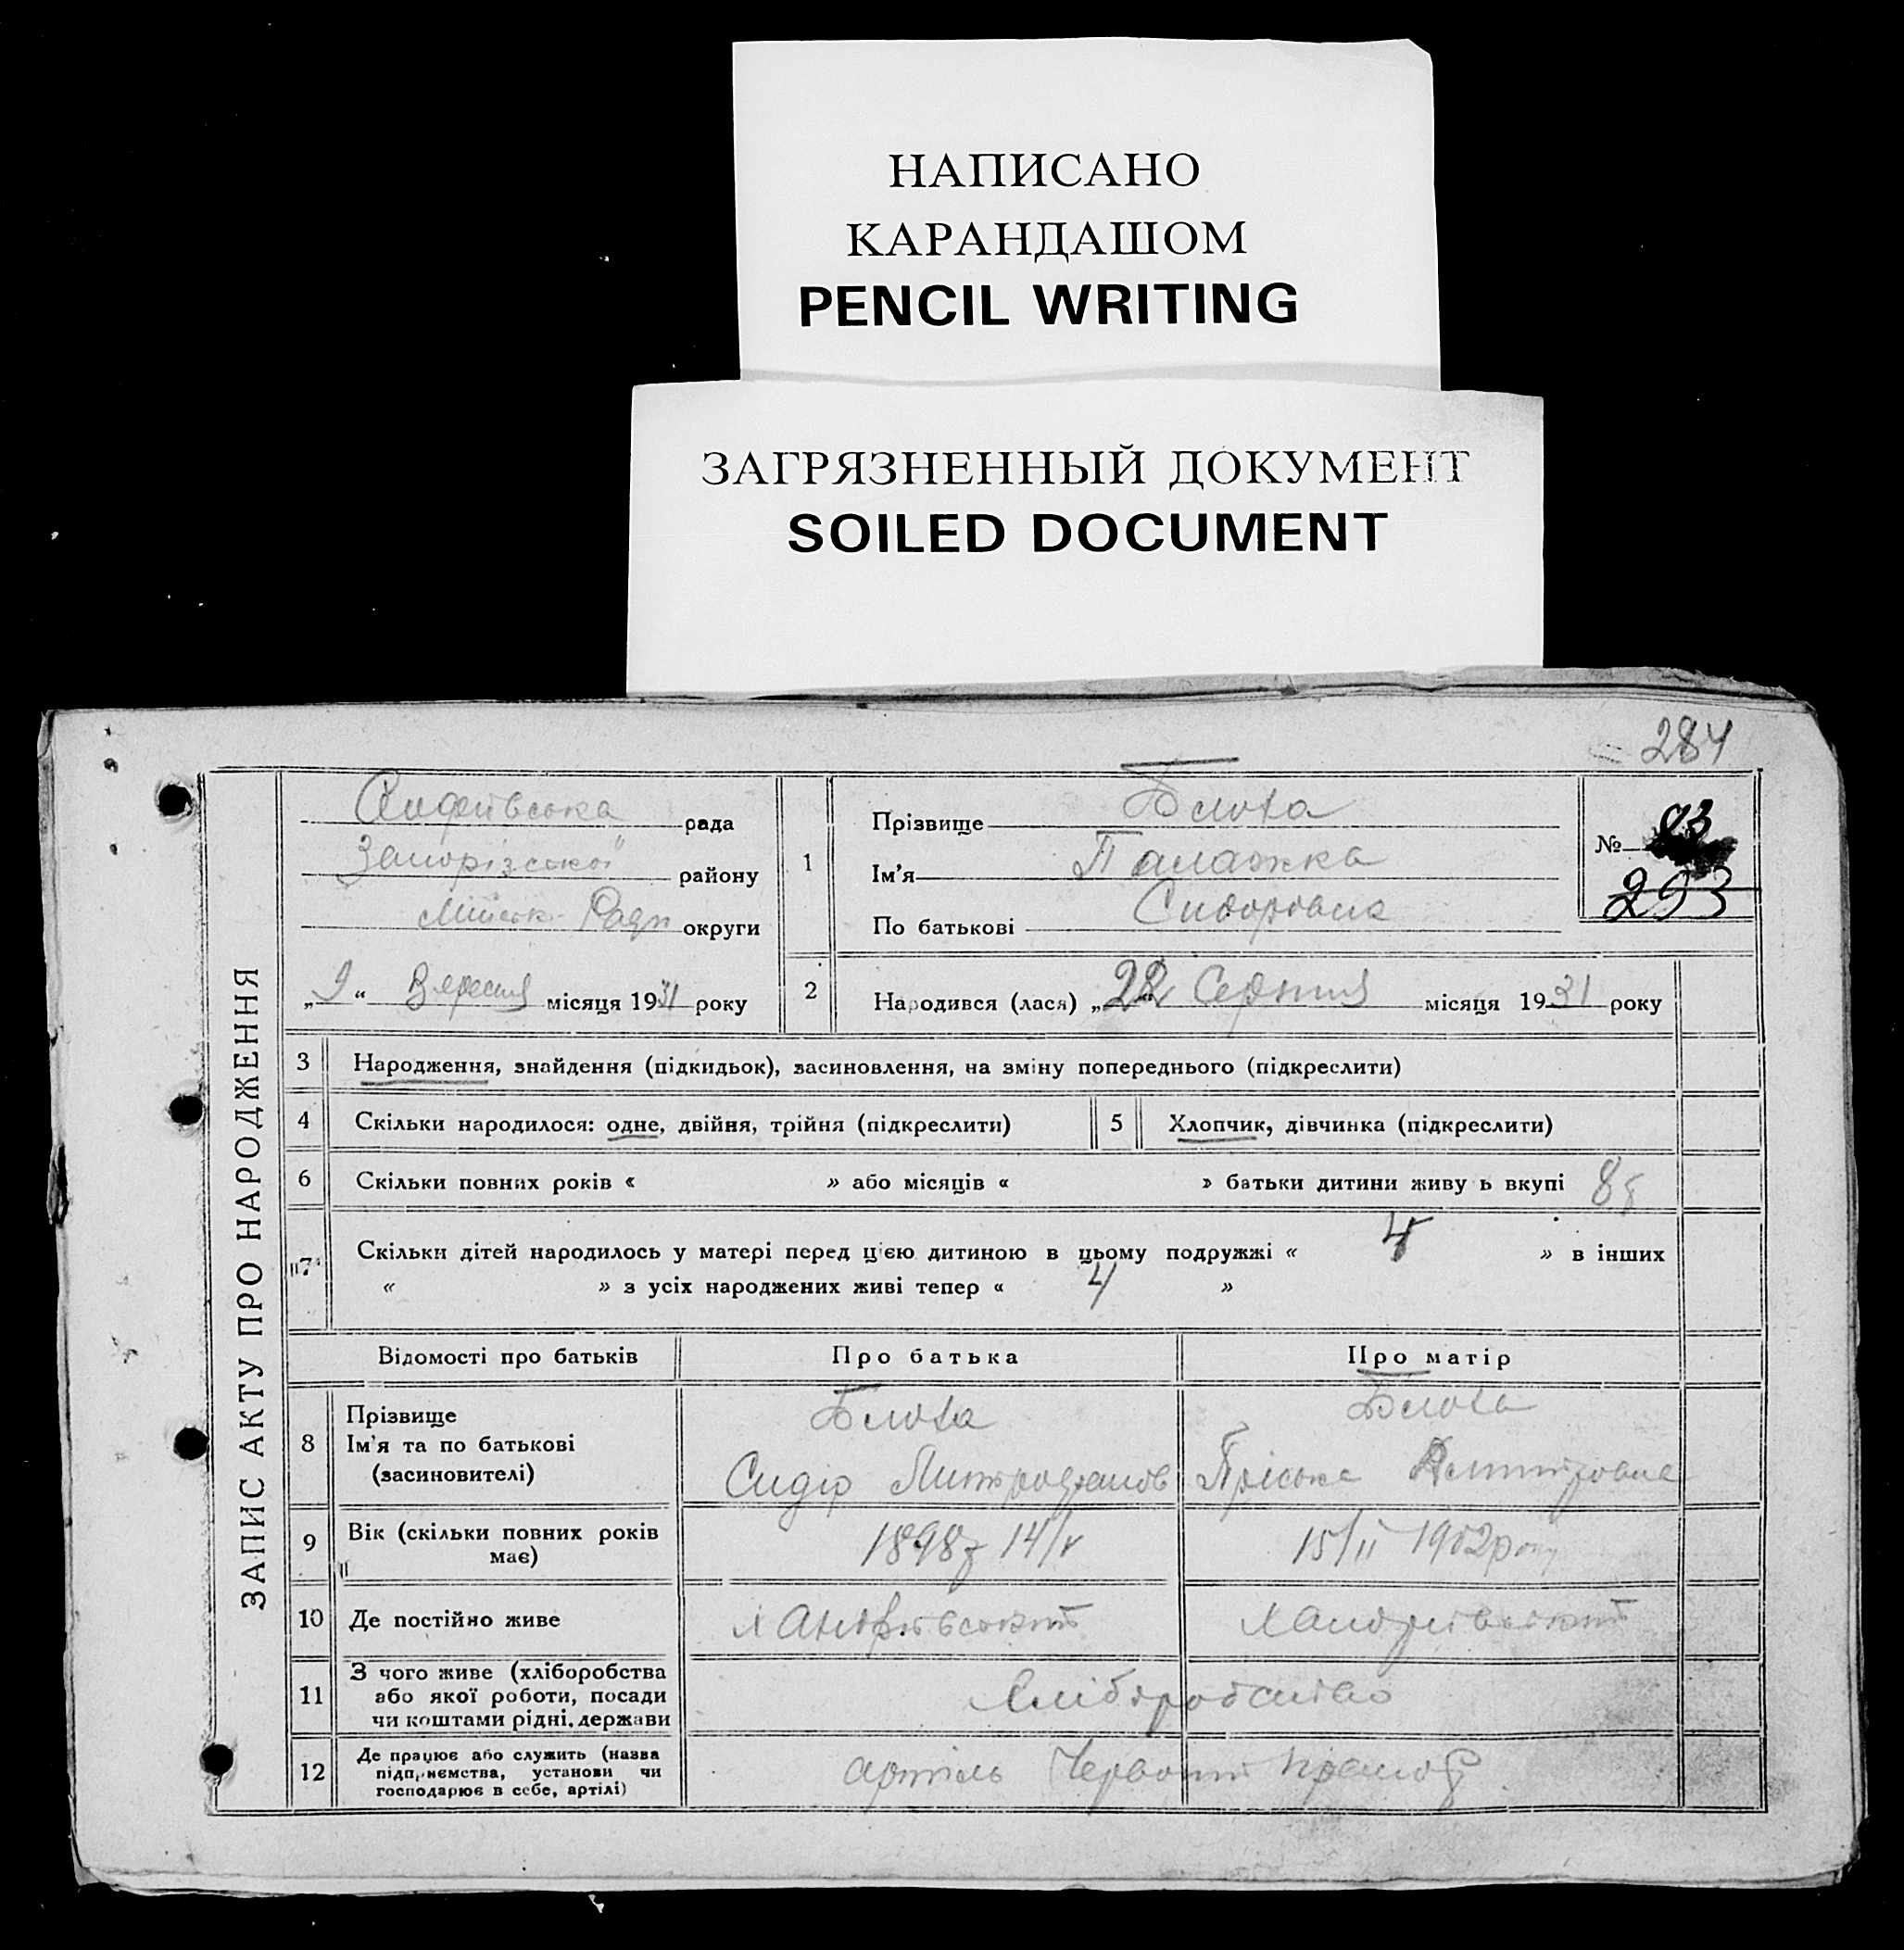 НАПИСАНО
КАРАНДАШОМ
PENCIL WRITING
ЗАГРЯЗНЕННЫЙ ДОКУМЕНТ
SOILED DOCUMENT
284
ЗАПИС АКТУ ПРО НАРОДЖЕННЯ
рада
Запорізської району
Міськ Ради округи
„9“ Вересня місяця 1931 року
1
Прізвище Блоха
Ім'я Палажка
По батькові Сидоровна
№ 93
293
2 Народився (лася) „22 Серпня місяця 1931 року
3 Народження, знайдення (підкидьок), засиновлення, на зміну попереднього (підкреслити)
4 Скільки народилося: одне, двійня, трійня (підкреслити)
5 Хлопчик, дівчинка (підкреслити)
6 Скільки повних років « » або місяців « » батьки дитини живу ь вкупі 8
7 Скільки дітей народилось у матері перед цією дитиною в цьому подружжі « 4 » в інших
« » з усіх народжених живі тепер « 4 »
Відомості про батьків Про батька Про матір
8 Прізвище
Ім'я та по батькові
(засиновителі)
Блоха
Сидір Митрофанов
Блоха
Пріська Дмитровна
9 Вік (скільки повних років
має)
1898 14/V
15/II 1902 року
10 Де постійно живе
11 З чого живе (хліборобства
або якої роботи, посади
чи коштами рідні, держави
Хліборобство
12 Де працює або служить (назва
підприємства, установи чи
господарює в себе, артілі)
артіль Червоний